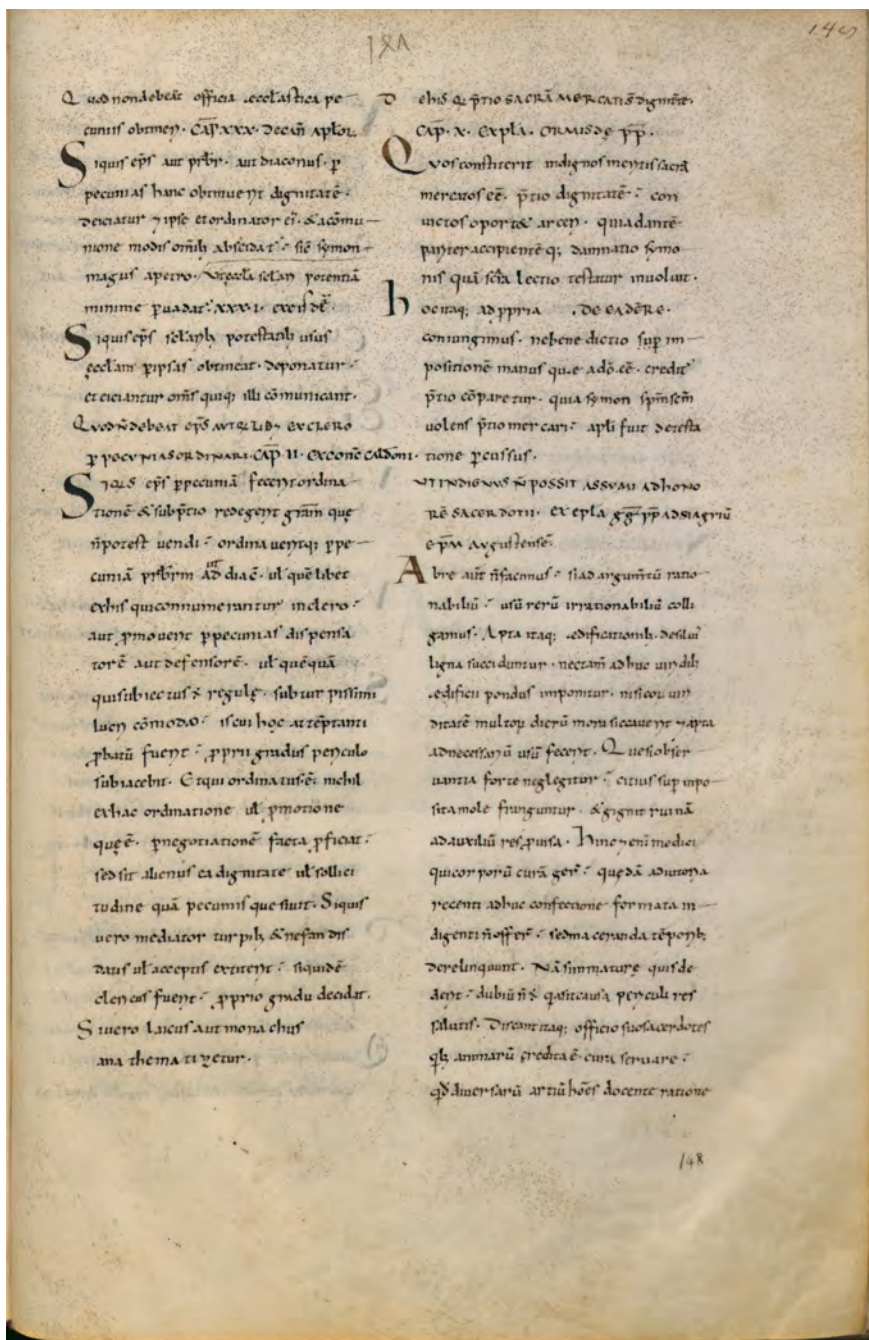 149
Quod non debeāt officia ęccl'astica pe
cuniis obtineri. CAP̄ XXX. Decan̄ apl'oɼ
Siquis ep̄s aut prb̄r. aut diaconus. ꝑ
pecunias hanc obtinuerit dignitatē.
deiciatur ⁊ ipse et ordinator ei'. & acōmu
nione modis omīb; abscidat'. sic̄ symon
magus apetro. Vt ęccl'a scl'ari potentiā
minime ꝑuadat'. XXXI. ex eisdē.
Siquis ep̄s scl'arib; potestatib; usus
ęccl'am ꝑ ipsas obtineat. deponatur.
et eiciantur om̄s quiq; illi cōmunicant.
Quod n̄ debeat ep̄s aut qͥlib; ex clero
ꝑ pecunias ordinari. CAP̄. II. ex conc̄ caldōni.
Siqͥs ep̄s ꝑ pecuniā fecerit ordina
tionē & sub p̄tio redegerit gr̄am que
n̄ potest uendi. ordinaueritq; ꝑ pe
cuniā prb̄rm aut diac̄. ul' quēlibet
ex his qui connumerantur in clero.
aut ꝓmouerit ꝑ pecunias dispensa
torē aut defensorē. ul' quēquā
qui subiectus ē regulę. sub turpissimi
lucri cōmodo. is cui hoc attēptanti
ꝓbatū fuerit. ꝓprii gradus periculo
subiacebit. Et qui ordinatus ē. nichil
ex hac ordinatione ul' ꝓmotione
quę ē. ꝑ negotiationē facta ꝓficiat.
sed sit alienus ea dignitate ul' sollici
tudine quā pecuniis quesiuit. Siquis
uero mediator turpib; & nefandis
datis ul' acceptis extiterit. siquidē
clericus fuerit. ꝓprio gradu decidat.
Si uero laicus aut monachus
anathematizetur.
De his qͥ p̄tio sacrā mercati s̄ dignitatē.
CAP̄. X. ex pl'a. ORMISDE PP̄.
Quos constiterit indignos meritis sacrā
mercatos eē. p̄tio dignitatē. con
uictos oport& arceri. quia dantē
pariter accipientēq; damnatio symo
nis quā sc̄a lectio testatur inuoluit.
Hoc itaq; ad ꝓpria . DE EADĒ RE.
coniungimus. ne benedictio sup̄ im
positionē manus que ado. eē. credit'
p̄tio cōparetur. quia symon sp̄m sc̄m
uolens p̄tio mercari. apl'i fuit detesta
tione ꝑcussus.
VT INDIGNVS N̄ POSSIT ASSVMI AD HONO
RĒ SACERDOTII. EX EPLA GḠ PP̄ AD SIAGRIŪ
EP̄M Augustensē.
Ab re aut̄ n̄ facimus. si ad argum̄tū ratio
nabiliū. usū rerū irrationabiliū colli
gamus. Apta itaq; ędificationib; de siluis
ligna succiduntur. nec tam̄ adhuc uiridib;
ędificii pondus imponitur. nisi eoɼ uiri
ditatē multoɼ dierū mora siccauerit ⁊ apta
ad necessariū usū fecerit. Que si obser
uantia forte neglegitur. citius sup̄inpo
sita mole franguntur. & gignit ruinā
ad auxiliū res ꝓuisa. Hinc ⁊eni medici
qui corporū curā ger̄. quedā adiutoria
recenti adhuc confectione formata in
digenti n̄ offer̄. sed maceranda tēporib;
derelinquunt. Nā si immature quis de
derit. dubiū n̄ ē qͣ sit causa periculi res
salutis. Discant itaq; officio suo sacerdotes
qͥb; animarū credita ē. cura seruare.
qd̄ diuersarū artiū hoēs docente ratione
148